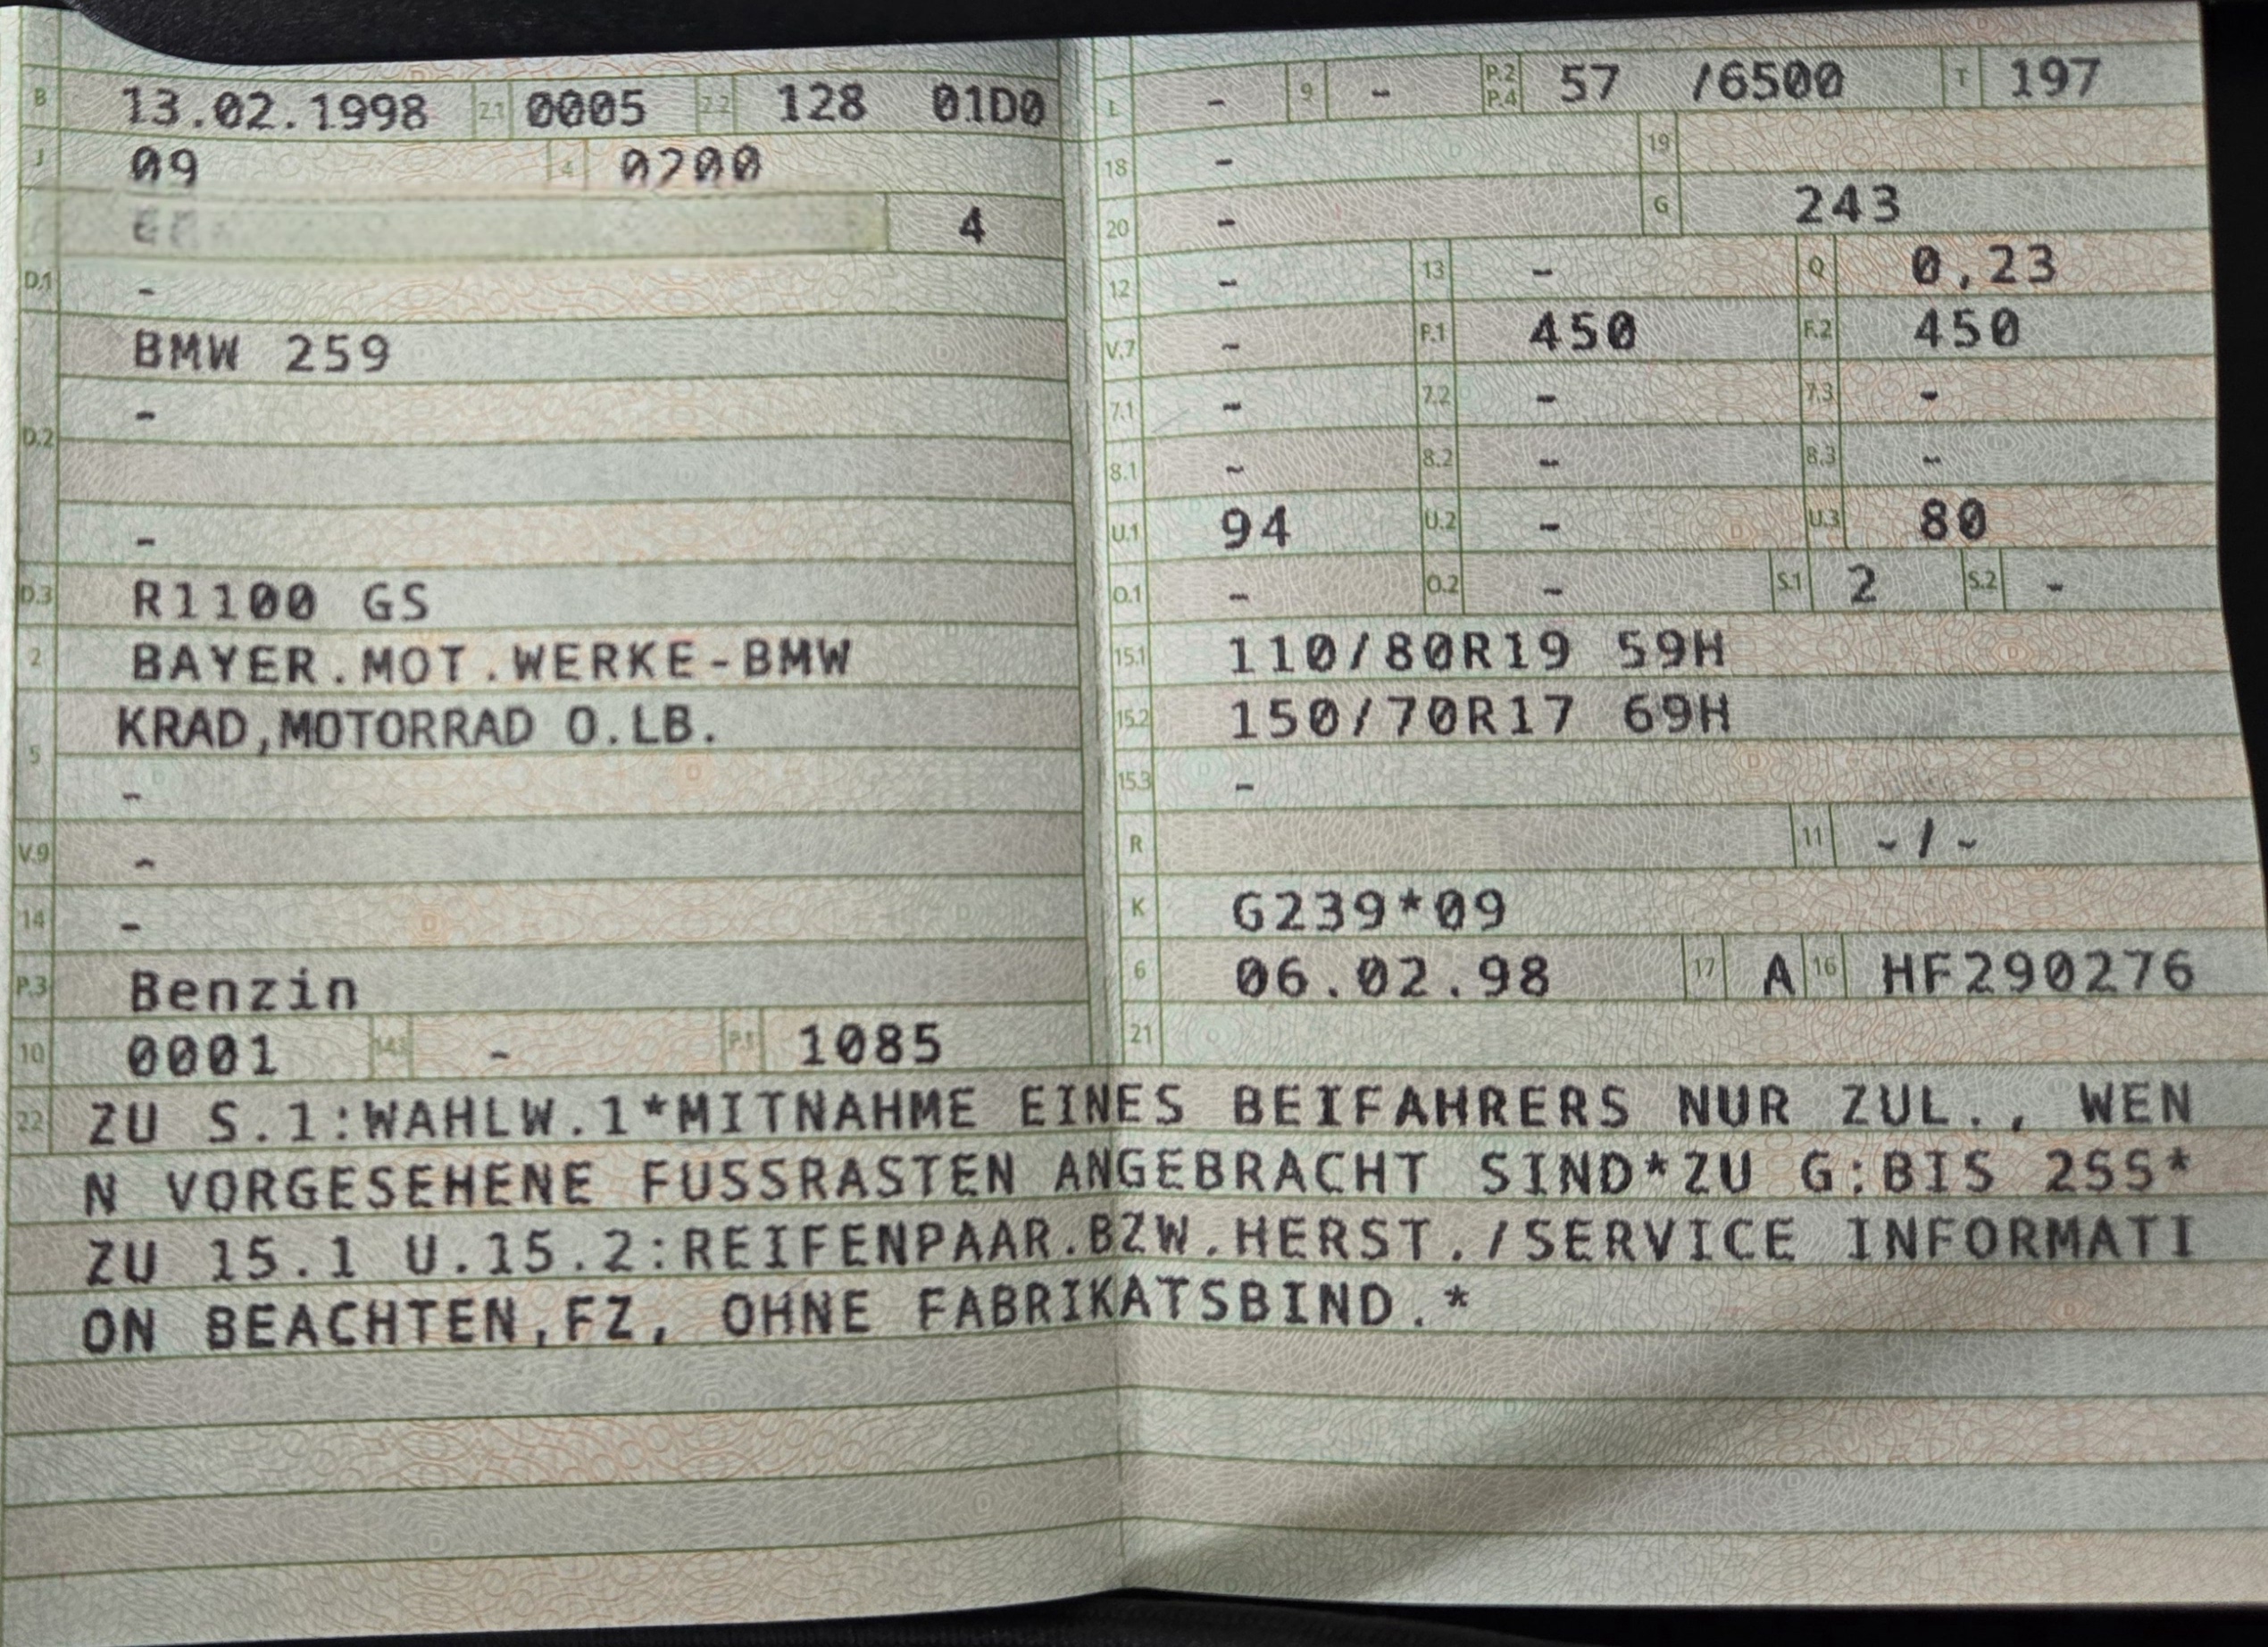 B 13.02.1998 2.1 0005 2.2 128 01D0
J 09 4 0200
4
D.1 -
BMW 259
D.2 -
-
D.3 R1100 GS
2 BAYER.MOT.WERKE-BMW
5 KRAD,MOTORRAD O.LB.
-
V.9 -
14 -
P.3 Benzin
10 0001 14.1 - P.1 1085
L - 9 - P.2 P.4 57 /6500 T 197
18 - 19
20 - G 243
12 - 13 - Q 0,23
V.7 - F.1 450 F.2 450
7.1 - 7.2 - 7.3 -
8.1 - 8.2 - 8.3 -
U.1 94 U.2 - U.3 80
O.1 - O.2 - S.1 2 S.2 -
15.1 110/80R19 59H
15.2 150/70R17 69H
15.3 -
R 11 -/-
K G239*09
6 06.02.98 17 A 16 HF290276
21
22 ZU S.1:WAHLW.1*MITNAHME EINES BEIFAHRERS NUR ZUL., WEN
N VORGESEHENE FUSSRASTEN ANGEBRACHT SIND*ZU G:BIS 255*
ZU 15.1 U.15.2:REIFENPAAR.BZW.HERST./SERVICE INFORMATI
ON BEACHTEN,FZ, OHNE FABRIKATSBIND.*